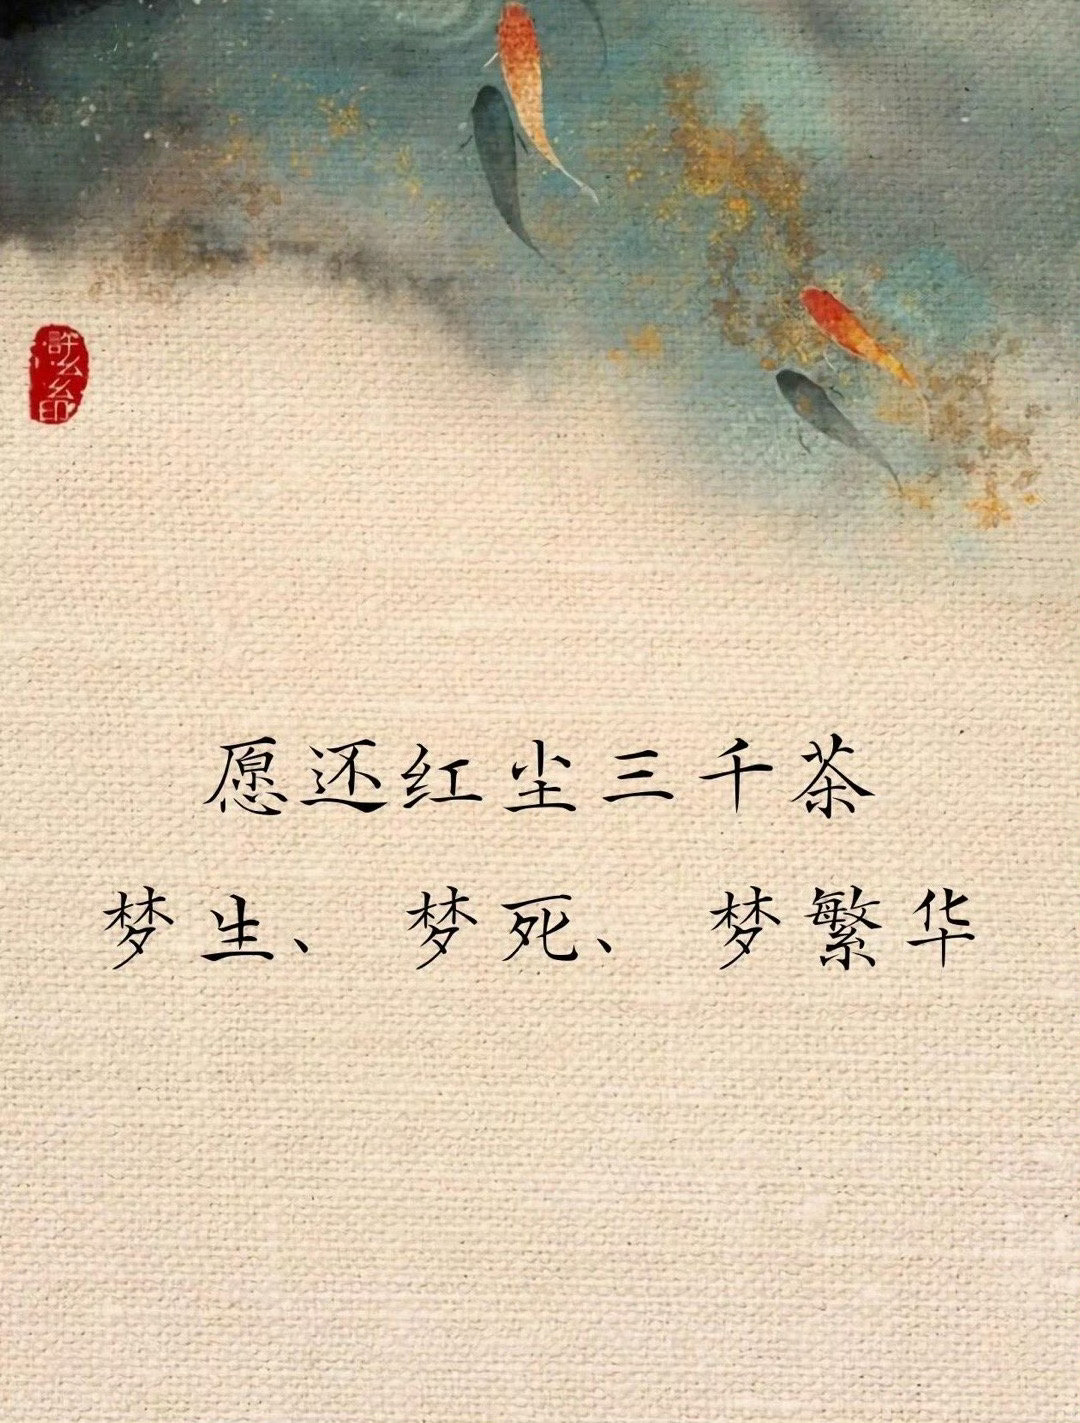 愿还红尘三千茶
梦生、梦死、梦繁华